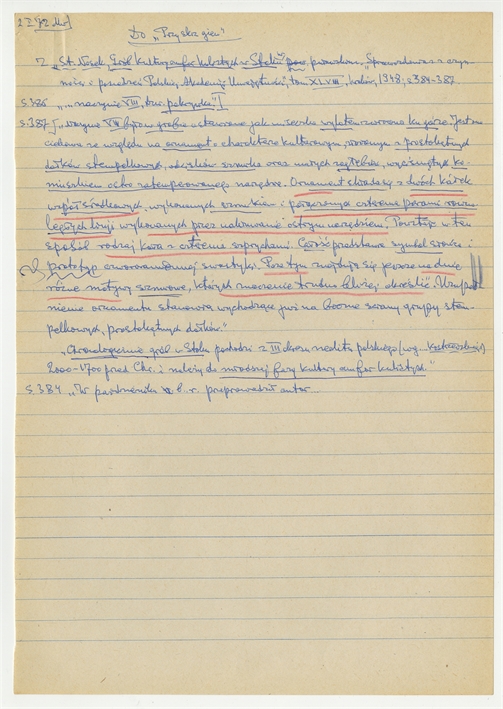 Do "Pryska gieu"
"St. Nosek, Grób kultury amfor kulistych w Stoku pow. puławskim", Sprawozdania z czyn-
ności i posiedzeń Polskiej Akademii Umiejętności, tom XLVIII, Kraków, 1948, s. 384-387
s. 386 "naczynie VIII, tzw. pokrywka"
s. 387 naczynie VIII było w grobie ustawione jak miseczka wylotem zwrócona ku górze. Jest ona
ciekawa ze względu na ornament o charakterze kultowym, złożony z prostokątnych
dołków stempelkowych, odcisków sznurka oraz małych ząbków, wyciśniętych ka-
mieniem albo zatemperowanego narzędzia. Ornament składa się z dwóch kółek
współśrodkowych, wykonanych sznurkiem i połączonych czterema parami równo-
ległych linij wykonanych przez nakłuwanie ostrym narzędziem. Powstaje w ten
sposób rodzaj koła z czterema szprychami. Całość przedstawia symbol słońca i
prototyp czwororamiennej swastyki. Poza tym znajdują się jeszcze na dnie
różne motywy sznurowe, których znaczenie trudno bliżej określić. Uzupeł-
nienie ornamentu stanowią wychodzące już na boczne ściany grupy stem-
pelkowych, prostokątnych dołków."
"Chronologicznie grób w Stoku pochodzi z III okresu neolitu polskiego (wg. Kostrzewskiego)
2000-1700 przed Chr. i należy do młodszej fazy kultury amfor kulistych."
s. 384 "W październiku b. r. przeprowadził autor